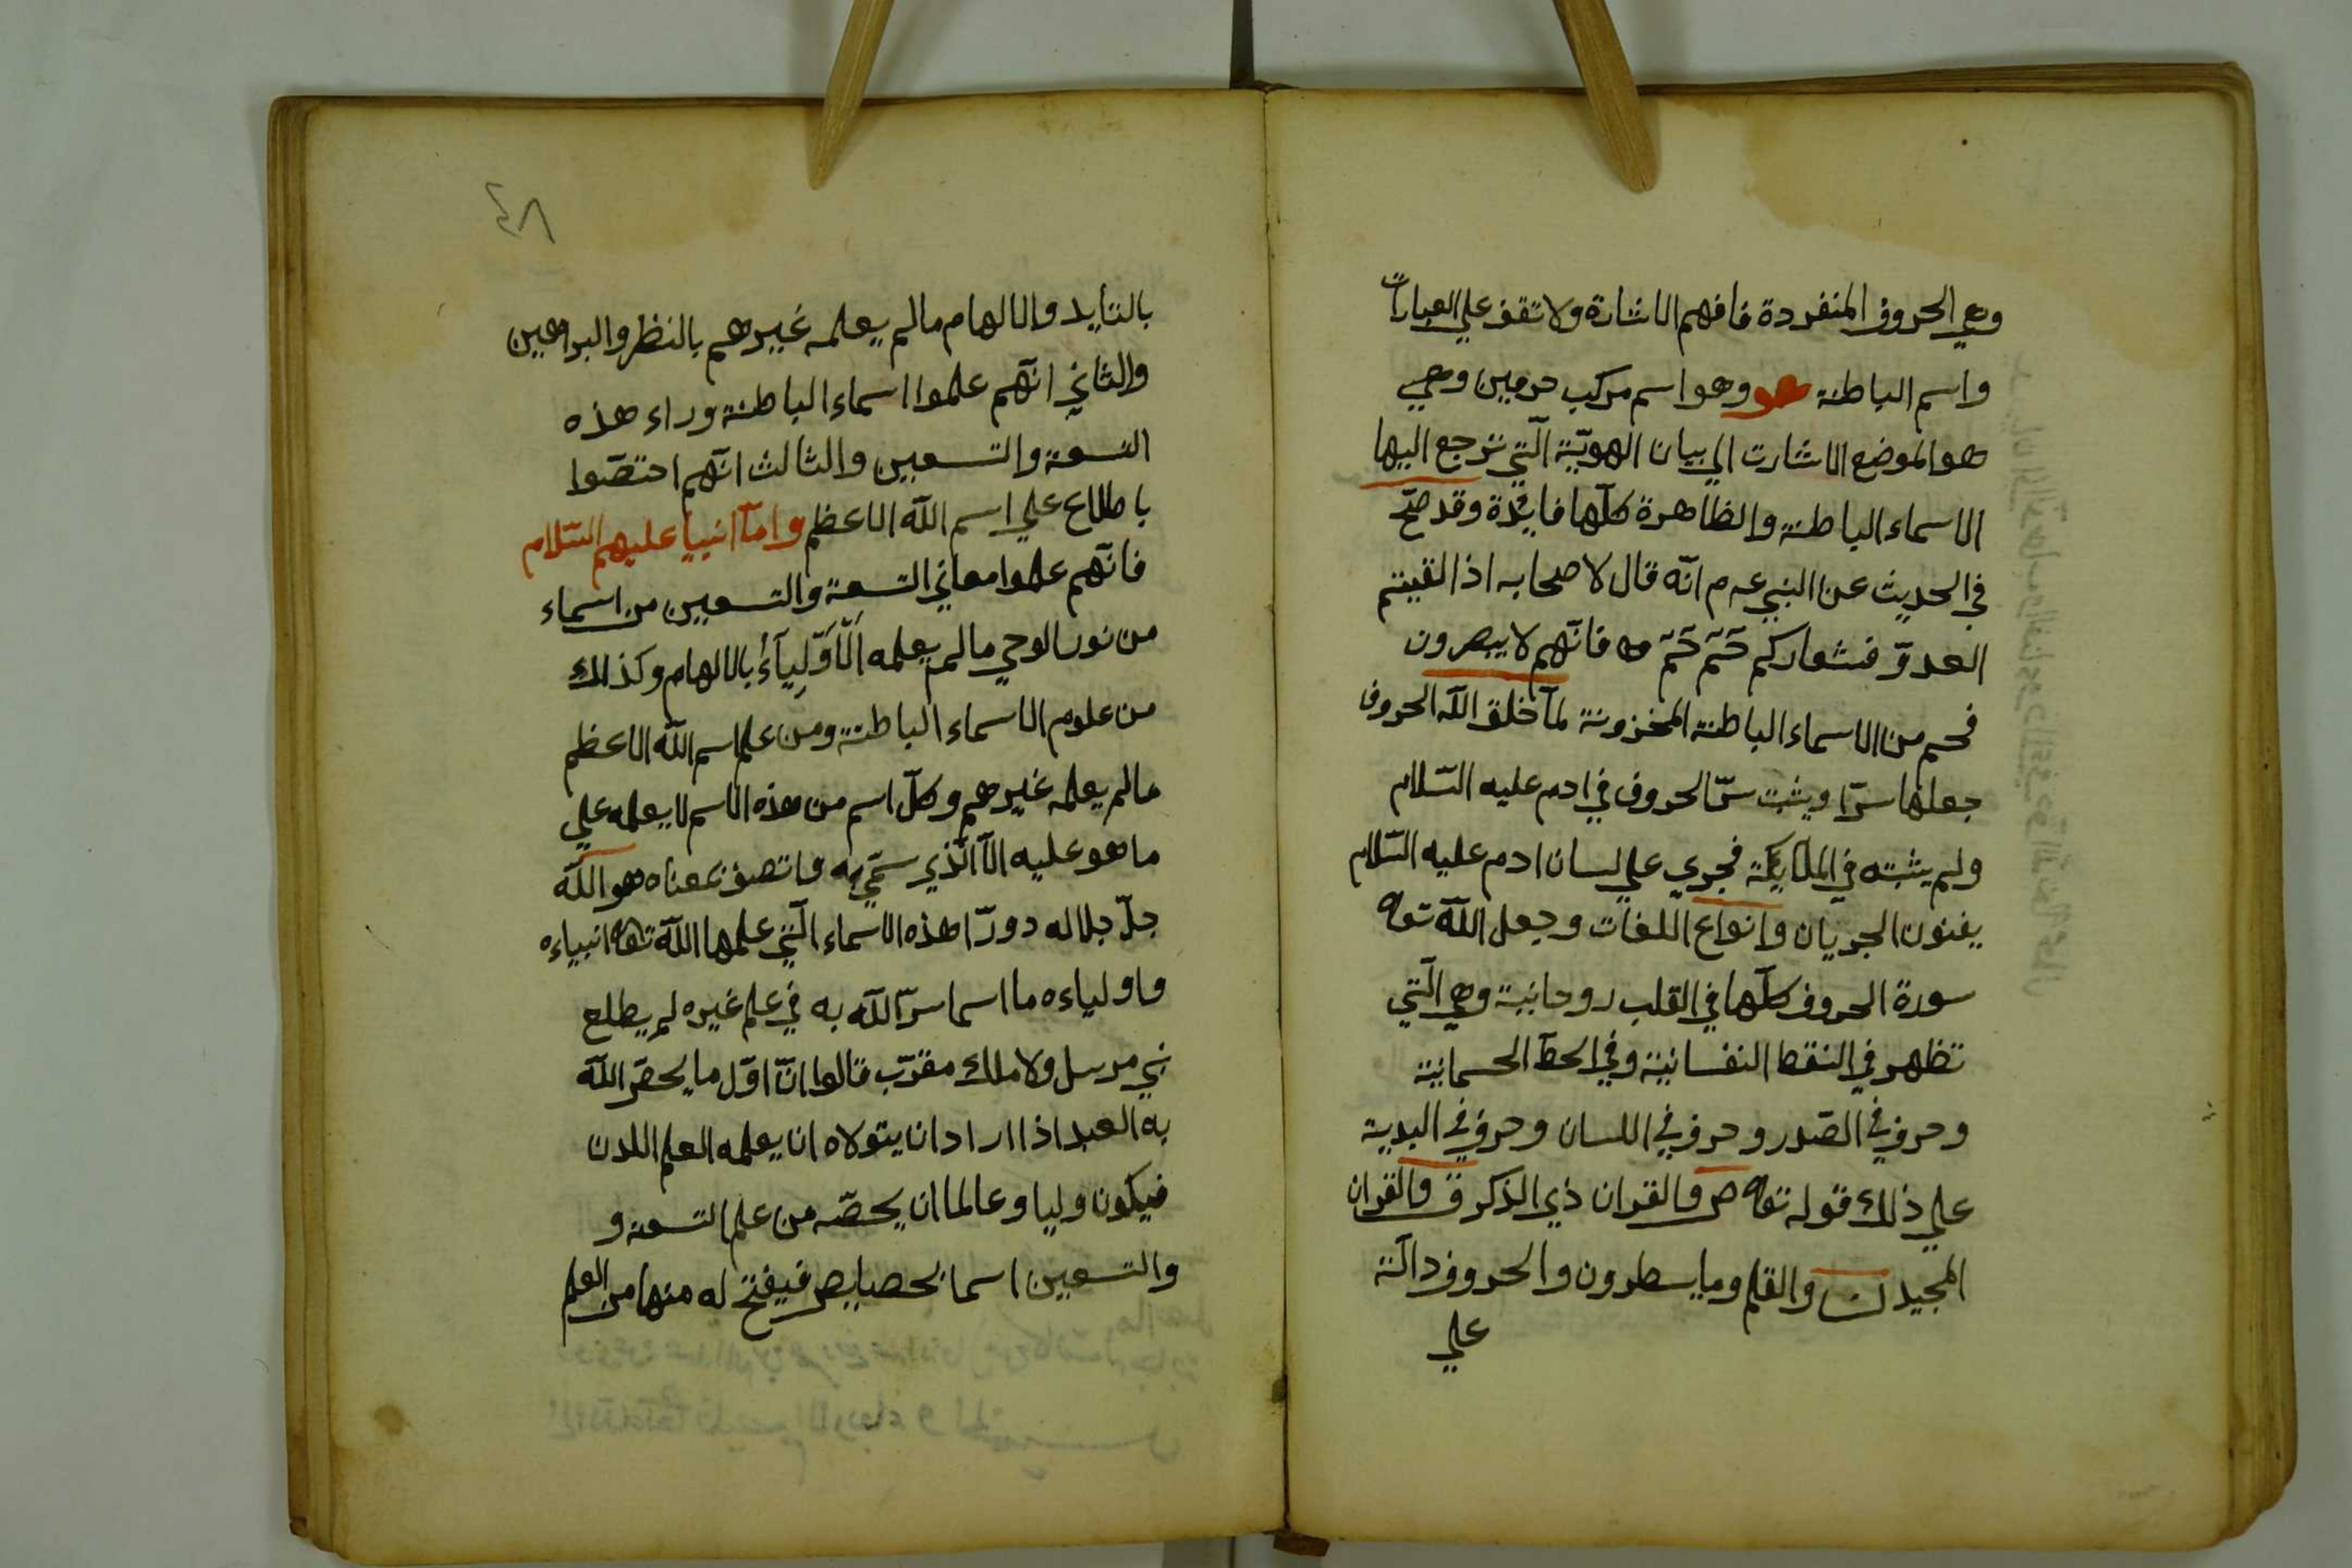 وهي الحروف المنفردة فافهم الاشارة ولا تقف علي العبارات
واسم الباطنة هو وهو اسم مركب حرفين وهي
هو الموضع الاشارت الي بيان الهويّة الّتي ترجع اليها
الاسماء الباطنة والظاهرة كلّها فايدة وقد صحّ
في الحديث عن النبي عم انّه قال لاصحابه اذا لقيتم
العدوّ فشعاركم حّم حّم فانّهم لا يبصرون
فحم من الاسماء الباطنة المخزونة لمّا خلق اللّه الحروف
جعلها سرّا ويثبت سرّ الحروف في ادم عليه السّلام
ولم يثبته في الملايكة فجري علي لسان ادم عليه السّلام
بفنون الجريان وانواع اللغات وجعل اللّه تعا
سورة الحروف كلّها في القلب روحانية وهي الّتي
تظهر في النقط النفسانية وفي الخطّ الجسمانية
وحرف في الصّدر وحرف في اللسان وحرف في اليدية
علي ذلك قوله تعا ص والقران ذي الذكر ق والقران
المجيد ن والقلم وما يسطرون والحروف دالّة
علي
٤٨
بالتايد والالهام مالم يعلمه غيرهم بالنظر والبراهين
والثاني انّهم علموا اسماء الباطنة وراء هذه
التسعة والتسعين والثالث انّهم اختصّوا
باطلاع علي اسم اللّه الاعظم وامّا انبيا عليهم السّلام
فانّهم علموا معاني التسعة والتسعين من اسماء
من نور الوحي مالم يعلمه الأولياء بالالهام وكذلك
من علوم الاسماء الباطنة ومن علم اسم اللّه الاعظم
مالم يعلمه غيرهم وكلّ اسم من هذه الاسم لا يعلمه علي
ما هو عليه الّا الّذي سمّي به واتصف بمعناه هو اللّه
جلّ جلاله دورّا هذه الاسماء الّتي علمها اللّه تعا انبياءه
واولياءه ما اسما سرّ اللّه به في علم غيره لم يطلع
نبي مرسل ولا ملك مقرّب قالوا انّ اوّل ما يخصّ اللّه
به العبد اذا اراد ان يتولاه ان يعلمه العلم اللدن
فيكون وليا وعالما ان يخصّه من علم التسعة و
والتسعين اسما بخصايص فيفتح له منها من العلم